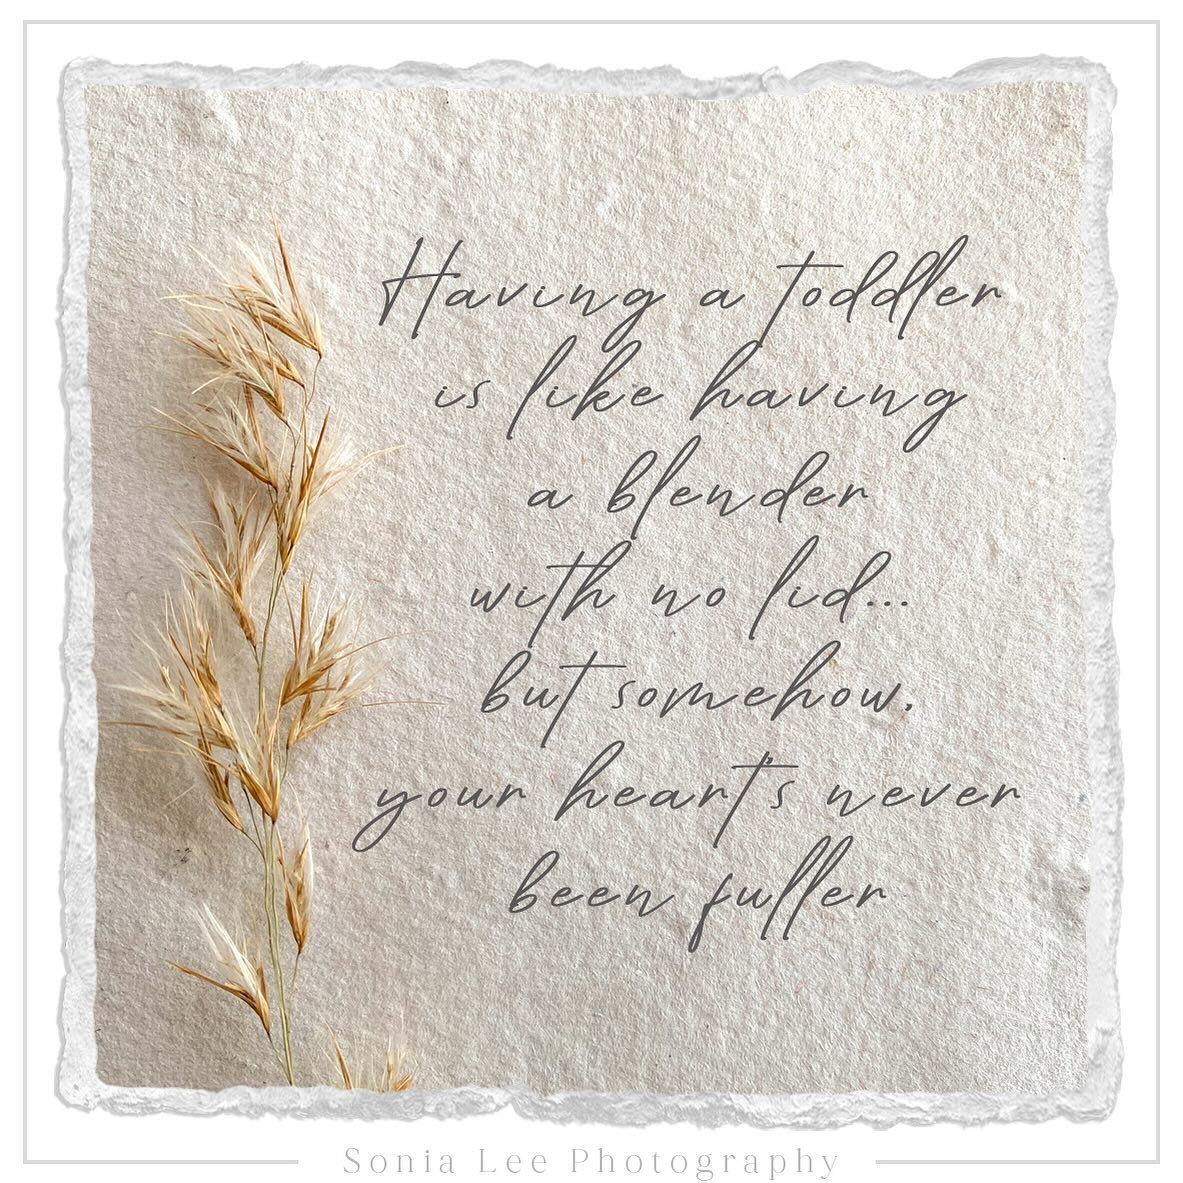 Having a toddler
is like having
a blender
with no lid...
but somehow,
your heart's never
been fuller
Sonia Lee Photography